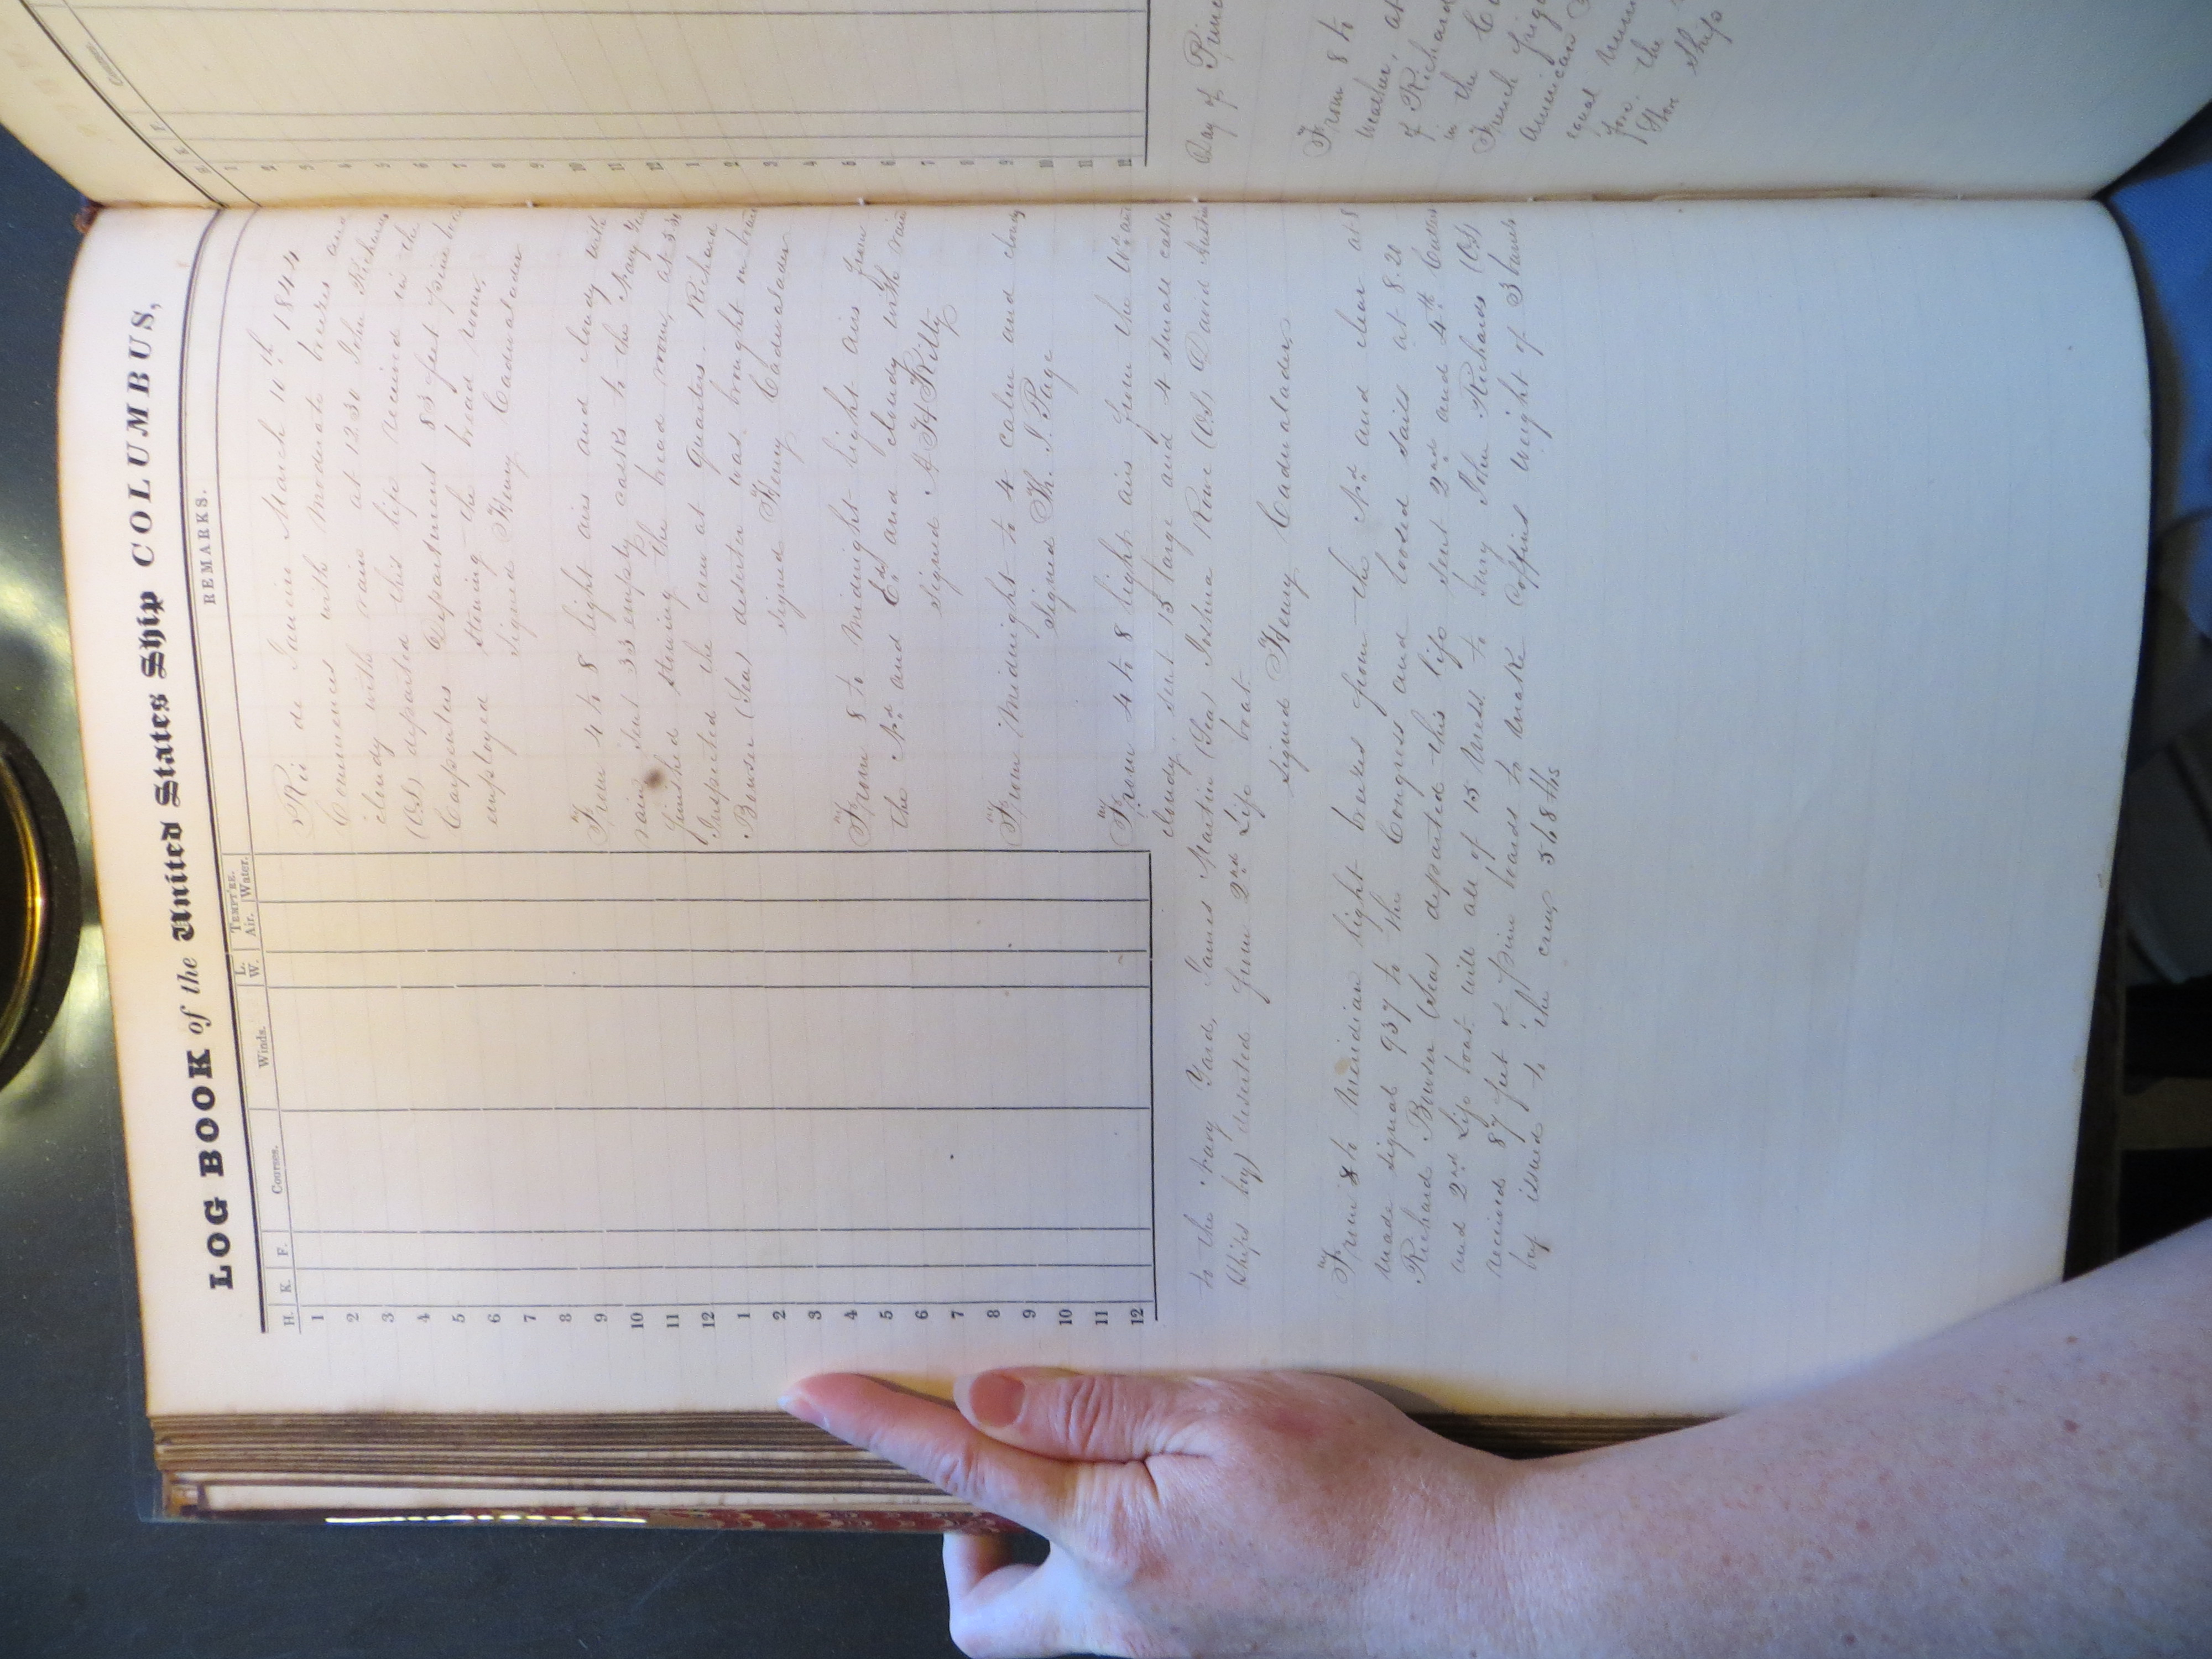 LOG BOOK of the United States Ship COLUMBUS,
H. K. F. Courses. Winds. L. W. TEMPT'RE. Air. Water. REMARKS.
1
2
3
4
5
6
7
8
9
10
11
12
1
2
3
4
5
6
7
8
9
10
11
12
Rio de Janeiro March 10th 1844
Commences with moderate breezes and
cloudy with rain at 12.30 John Richards
(OS) departed this life received in the
Carpenters Department 83 feet pine boards
employed stowing the bread room.
signed Henry Cadwalader
Fm From 4 to 8 light airs and cloudy with
rain sent 33 empty casks to the Navy Yard
finished stowing the bread room, at 5.30
Inspected the crew at quarters. Richard
Bowser (Sea) deserter was brought on board
signed Henry Cadwalader
From 8 to Midnight light airs from
the Nd and Ed and cloudy with rain
signed A H Kilty
From Midnight to 4 calm and cloudy
signed Th. J. Page
From 4 to 8 light airs from the Wd and
cloudy, sent 15 large and 4 small casks
to the Navy Yard, James Martin (Sea) Joshua Rowe (OS) David
(Ships boy) deserted from 2nd Life boat.
signed Henry Cadwalader
From 8 to Meridian light breezes from the Nd and clear at 8
made signal 937 to the Congress and loosed sails at 8.20
Richard Bowser (Sea) departed this life sent 2nd and 4th Cutters
and 2nd Life boat with all of 15 Mess to bury John Richards (OS)
received 87 feet of pine boards to make coffins weight of 3 bands
beef issued to the crew 568 lbs
H. K. F. Courses
1
2
3
4
5
6
7
8
9
10
11
12
1
2
3
4
5
6
7
8
9
10
11
12
Bay of
From 8 to
weather, at
of Richard
in the
French frig
American
for the
Ship